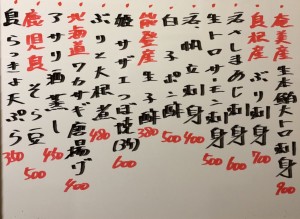 奄美産 生本鮪大トロ刺身 900
長崎産 ぶり刺身 700
石べしまあじ刺身 600
生トロサーモン刺身 500
名帆立刺身 400
白子ポン酢 500
能登産 生子酢 380
姫サザエつぼ焼(3ヶ) 600
ぶり大根煮 480
北海道 ワカサギ唐揚げ 400
アサリ酒蒸し 450
鹿児島 そら豆 500
島らっきょ天ぷら 350